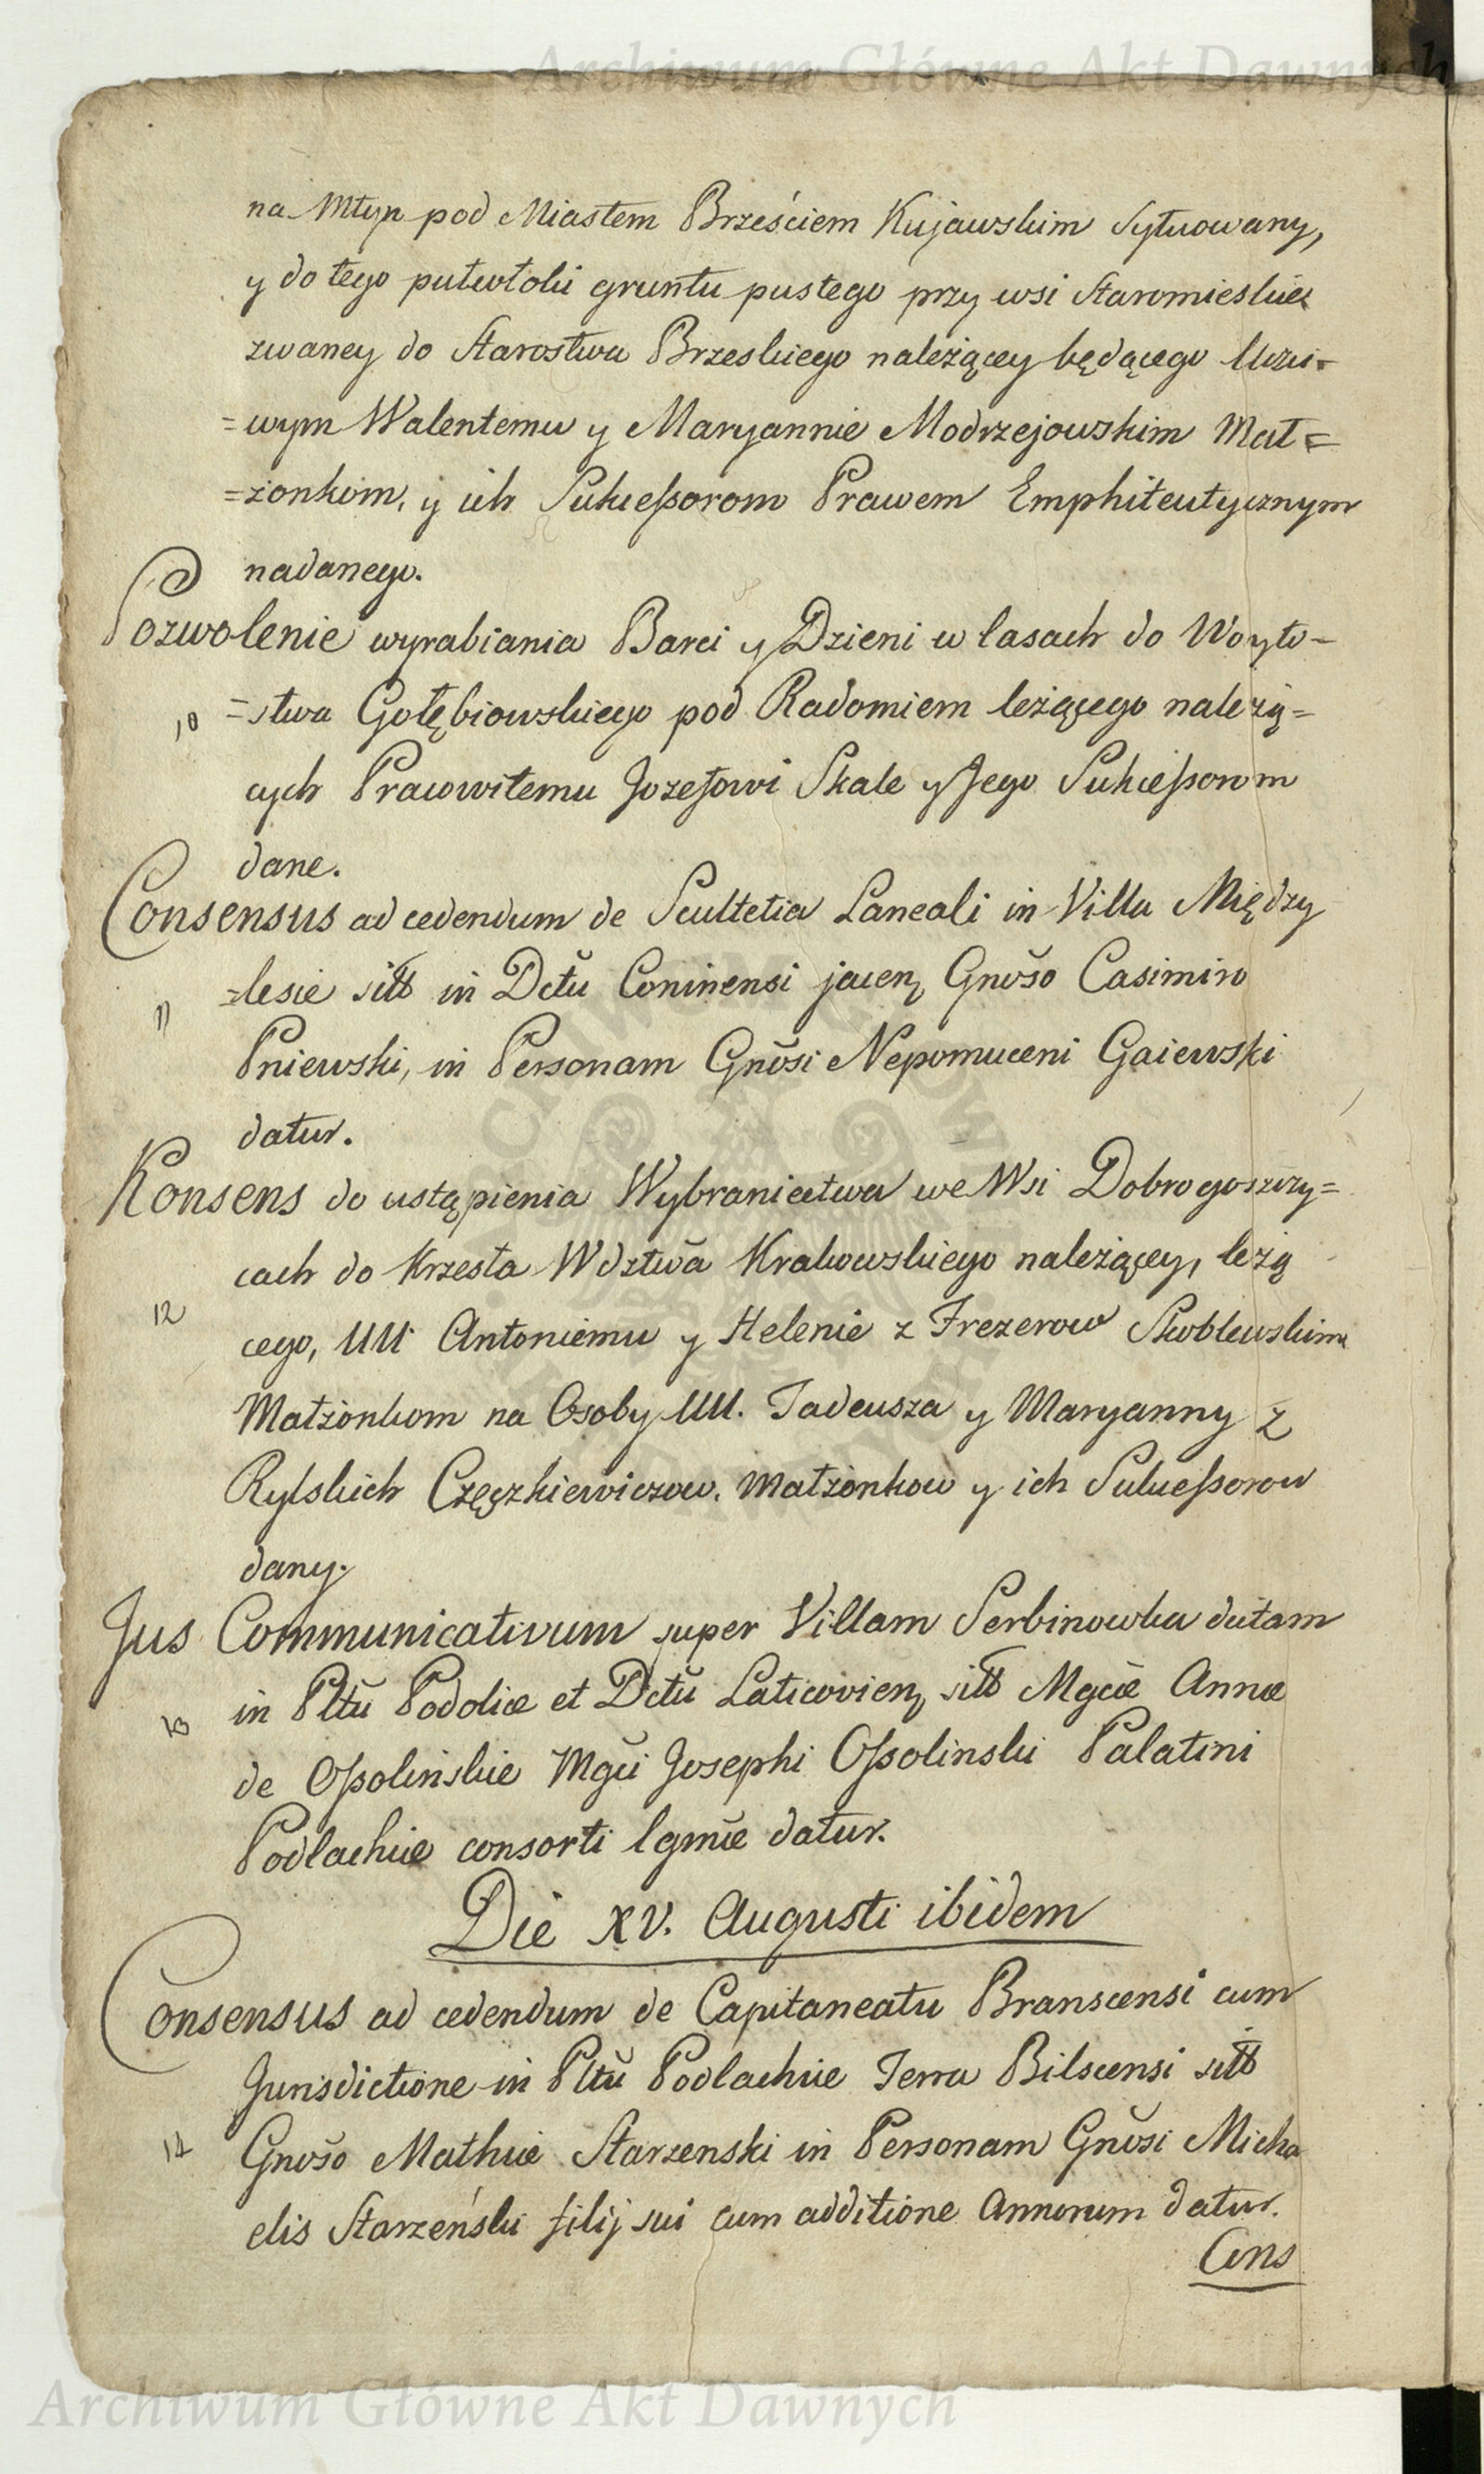 Archiwum Główne Akt Dawnych
na Młyn pod Miastem Brześciem Kujawskim Sytuowany,
y do tego putwłoki gruntu pustego przy wsi Staromieskiey
zwaney do Starostwa Brzeskiego należącey będącego Uczci=
=wym Walentemu y Maryannie Modrzejowskim Mał=
=żonkom, y ich Sukceßorom Prawem Emphiteutycznym
nadanego.
Pozwolenie wyrabiania Barci y Dzieni w lasach do Woyto-
10 =stwa Gołębiowskiego pod Radomiem leżącego należą=
cych Pracowitemu Jozefowi Skale y Jego Sukceßorom
dane.
Consensus ad cedendum de Scultetia Laneali in Villa Między
11 =lesie sitt in Dctũ Coninensi jacen Gnõso Casimiro
Pniewski, in Personam Gnõsi Nepomuceni Gaiewski
datur.
Konsens do ustąpienia Wybraniectwa we Wsi Dobrogoszczy=
cach do Krzesła Wdztwã Krakowskiego należącey, leżą
12 cego, UU Antoniemu y Helenie z Frezerow Skoblewskim
Małżonkom na Osoby UU. Tadeusza y Maryanny z
Rylskich Częczkiewiczow. Małżonkow y ich Sukceßorow
dany.
Jus Communicativum super Villam Serbinowka dictam
13 in Pltũ Podoliæ et Dctũ Laticovien sitt Mgcæ Annæ
de Oßolinskie Mgci Josephi Oßolinski Palatini
Podlachiæ consorti lgmæ datur.
Die XV. Augusti ibidem
Consensus ad cedendum de Capitaneatu Branscensi cum
Jurisdictione in Pltũ Podlachiæ Terra Bilscensi sitt
14 Gnõso Mathiæ Starzenski in Personam Gnõsi Micha
elis Starzeński filij sui cum additione Annorum datur.
Cons
Archiwum Główne Akt Dawnych